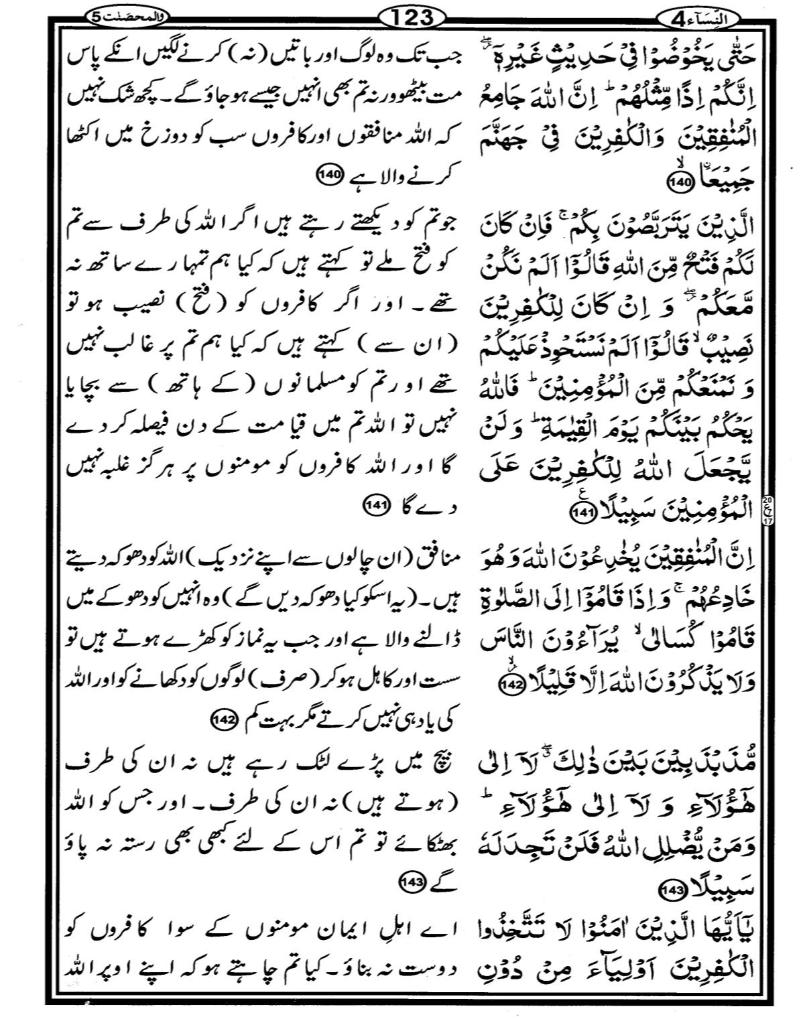 النِّسَآء 4
123
وَالمحصَنٰت 5
حَتّٰى يَخُوْضُوْا فِىْ حَدِيْثٍ غَيْرِهٖٓ ۖ
اِنَّكُمْ اِذًا مِّثْلُهُمْ ؕ اِنَّ اللهَ جَامِعُ
الْمُنٰفِقِيْنَ وَالْكٰفِرِيْنَ فِىْ جَهَنَّمَ
جَمِيْعَاۨ ۙ 140
الَّذِيْنَ يَتَرَبَّصُوْنَ بِكُمْ ۚ فَاِنْ كَانَ
لَكُمْ فَتْحٌ مِّنَ اللهِ قَالُوْٓا اَلَمْ نَكُنْ
مَّعَكُمْ ۖ وَ اِنْ كَانَ لِلْكٰفِرِيْنَ
نَصِيْبٌ ۙ قَالُوْٓا اَلَمْ نَسْتَحْوِذْ عَلَيْكُمْ
وَ نَمْنَعْكُمْ مِّنَ الْمُؤْمِنِيْنَ ؕ فَاللهُ
يَحْكُمُ بَيْنَكُمْ يَوْمَ الْقِيٰمَةِ ؕ وَ لَنْ
يَّجْعَلَ اللهُ لِلْكٰفِرِيْنَ عَلَى
الْمُؤْمِنِيْنَ سَبِيْلًا ع 141
20 ع 17
اِنَّ الْمُنٰفِقِيْنَ يُخٰدِعُوْنَ اللهَ وَ هُوَ
خَادِعُهُمْ ۚ وَ اِذَا قَامُوْٓا اِلَى الصَّلٰوةِ
قَامُوْا كُسَالٰى ۙ يُرَآءُوْنَ النَّاسَ
وَلَا يَذْكُرُوْنَ اللهَ اِلَّا قَلِيْلًا ۙ 142
مُّذَبْذَبِيْنَ بَيْنَ ذٰلِكَ ۖ لَاۤ اِلٰى
هٰٓؤُلَآءِ وَ لَاۤ اِلٰى هٰٓؤُلَآءِ ؕ
وَمَنْ يُّضْلِلِ اللهُ فَلَنْ تَجِدَ لَهٗ
سَبِيْلًا 143
يٰٓاَيُّهَا الَّذِيْنَ اٰمَنُوْا لَا تَتَّخِذُوا
الْكٰفِرِيْنَ اَوْلِيَآءَ مِنْ دُوْنِ
جب تک وہ لوگ اور باتیں (نہ) کرنے لگیں انکے پاس
مت بیٹھو ورنہ تم بھی انہیں جیسے ہو جاؤ گے۔ کچھ شک نہیں
کہ اللہ منافقوں اور کافروں سب کو دوزخ میں اکٹھا
کرنے والا ہے 140
جو تم کو دیکھتے رہتے ہیں اگر اللہ کی طرف سے تم
کو فتح ملے تو کہتے ہیں کہ کیا ہم تمہارے ساتھ نہ
تھے۔ اور اگر کافروں کو (فتح) نصیب ہو تو
(ان سے) کہتے ہیں کہ کیا ہم تم پر غالب نہیں
تھے اور تم کو مسلمانوں (کے ہاتھ) سے بچایا
نہیں تو اللہ تم میں قیامت کے دن فیصلہ کر دے
گا اور اللہ کافروں کو مومنوں پر ہرگز غلبہ نہیں
دے گا 141
منافق (ان چالوں سے اپنے نزدیک) اللہ کو دھوکہ دیتے
ہیں۔ (یہ اسکو کیا دھوکہ دیں گے) وہ انہیں کو دھوکے میں
ڈالنے والا ہے اور جب یہ نماز کو کھڑے ہوتے ہیں تو
سست اور کاہل ہو کر (صرف) لوگوں کو دکھانے کو اور اللہ
کی یاد ہی نہیں کرتے مگر بہت کم 142
بیچ میں پڑے لٹک رہے ہیں نہ ان کی طرف
(ہوتے ہیں) نہ ان کی طرف۔ اور جس کو اللہ
بھٹکائے تو تم اس کے لئے کبھی بھی رستہ نہ پاؤ
گے 143
اے اہلِ ایمان مومنوں کے سوا کافروں کو
دوست نہ بناؤ۔ کیا تم چاہتے ہو کہ اپنے اوپر اللہ